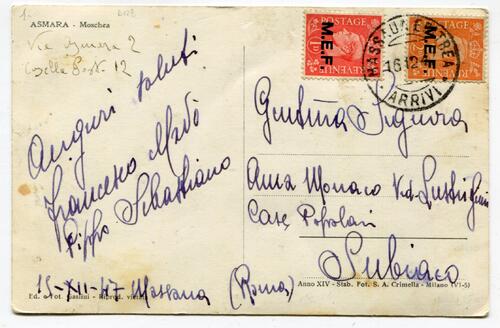 ASMARA - Moschea
Via
Casella Post. 12
Auguri saluti
Francesco
Pippo Sebastiano
15-XII-47 Massaua
Ed. e Fot. - Riprod. vietata
POSTAGE
REVENUE
M.E.F.
POSTAGE
REVENUE
M.E.F.
MASSAUA ERITREA
16.12
ARRIVI
Gentma Signora
Anna Monaco Via
Case Popolari
Subiaco
(Roma)
Anno XIV - Stab. Fot. S. A. Crimella - Milano (VI-5)